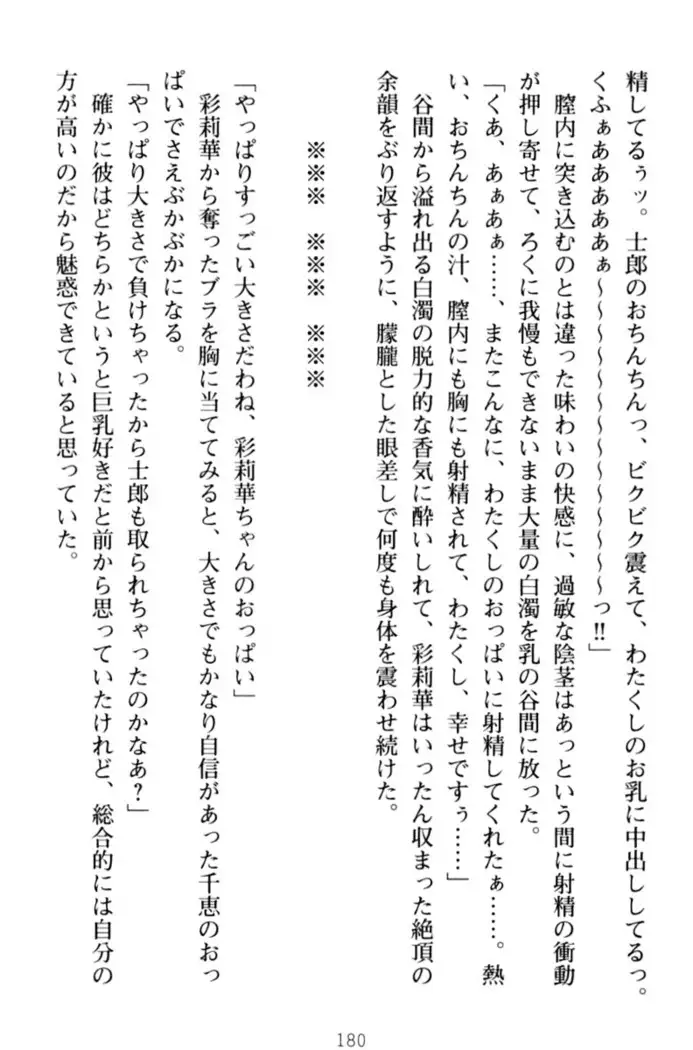 精してるぅッ。士郎のおちんちんっ、ビクビク震えて、わたくしのお乳に中出ししてるっ。
くふぁああああぁ～～～～～～～～～～～～っ!!」
膣内に突き込むのとは違った味わいの快感に、過敏な陰茎はあっという間に射精の衝動
が押し寄せて、ろくに我慢もできないまま大量の白濁を乳の谷間に放った。
「くあ、あぁあぁ……、またこんなに、わたくしのおっぱいに射精してくれたぁ……。熱
い、おちんちんの汁、膣内にも胸にも射精されて、わたくし、幸せですぅ……」
谷間から溢れ出る白濁の脱力的な香気に酔いしれて、彩莉華はいったん収まった絶頂の
余韻をぶり返すように、朦朧とした眼差しで何度も身体を震わせ続けた。
※※※ ※※※ ※※※
「やっぱりすっごい大きさだわね、彩莉華ちゃんのおっぱい」
彩莉華から奪ったブラを胸に当ててみると、大きさでもかなり自信があった千恵のおっ
ぱいでさえぶかぶかになる。
「やっぱり大きさで負けちゃったから士郎も取られちゃったのかなあ？」
確かに彼はどちらかというと巨乳好きだと前から思っていたけれど、総合的には自分の
方が高いのだから魅惑できていると思っていた。
180